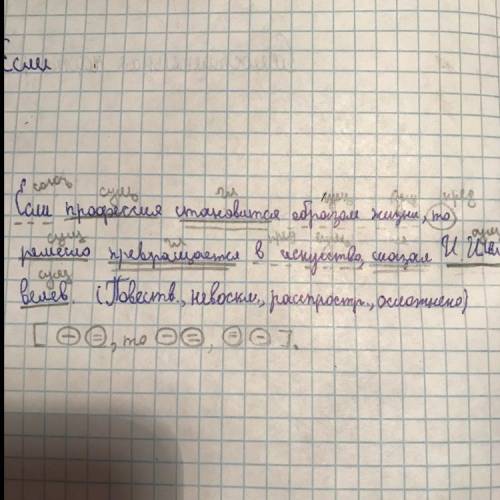 Если
союз сущ гл сущ сущ пред
Если профессия становится образом жизни, то
сущ гл пред сущ сущ
ремесло превращается в искусство, сказал И Ше
сущ
велев. (Повеств., невоскл., распростр., осложнено)
[ - = , то - = , = - ].